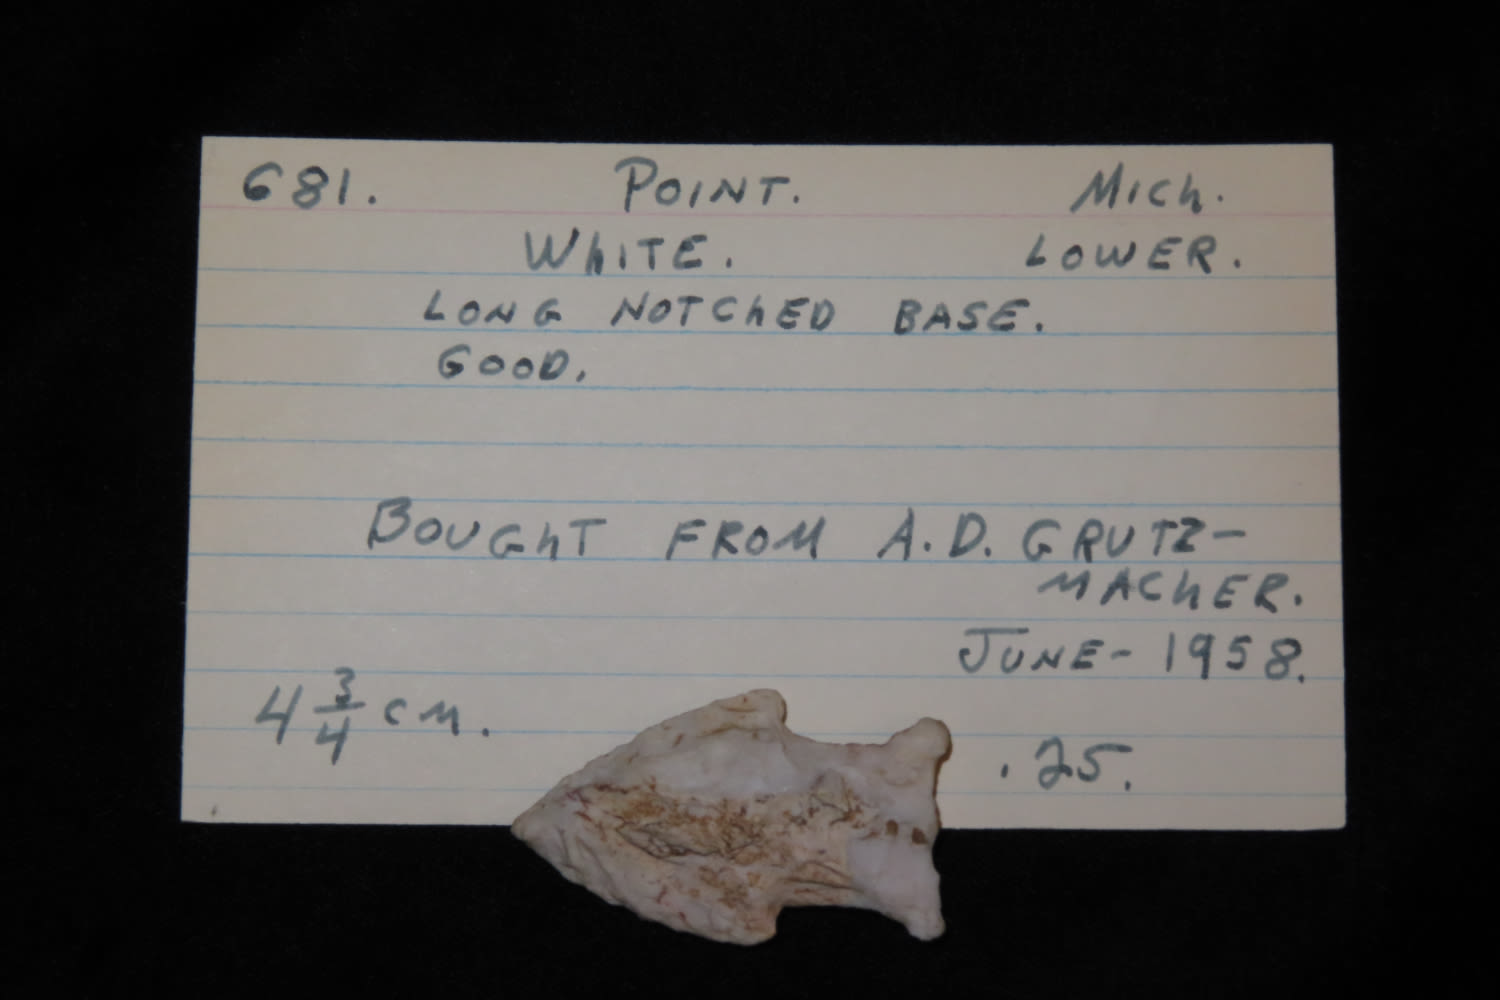 681. POINT. MICh.
WhITE. LOWER.
LONG NOTChED BASE.
GOOD.
BOUGhT FROM A.D. GRUTZ-
MAChER.
JUNE- 1958.
4 3/4 cM.
.25.